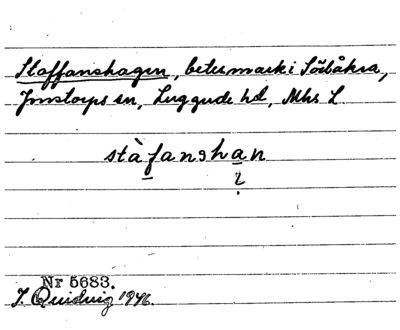 Staffanshagen, betesmark i Sösråkra,
Jonstorps sn, Luggude hd, Mhs L.
stàfanshan
i
Nr 5683.
J. Quidvig 1946.